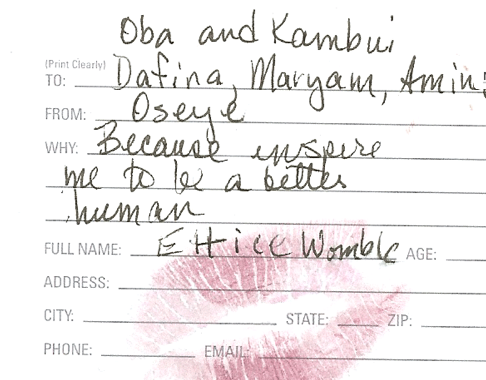 Oba and Kambui
(Print Clearly)
TO: Dafina, Maryam, Amin:
FROM: Oseye
WHY: Because inspire
me to be a better
human
FULL NAME: Ettice Womble AGE:
ADDRESS:
CITY: STATE: ZIP:
PHONE: EMAIL: